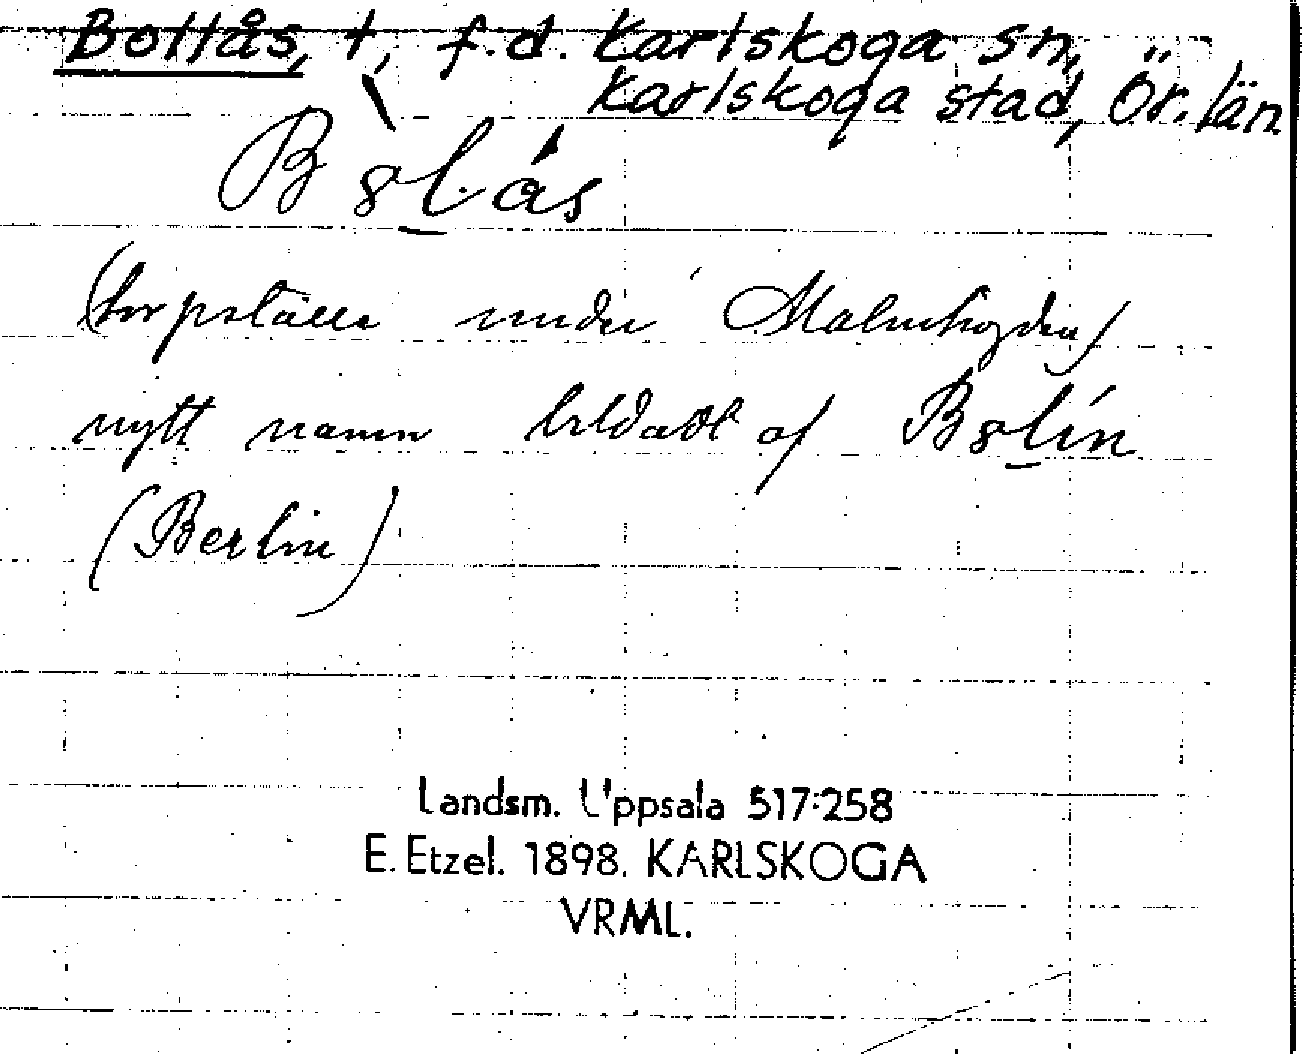 Bollås, t, f.d. Karlskoga sn,
Karlskoga stad, Ör. län
Bolås
(torpställe under Malmhöjden)
nytt namn bildadt af Bolin
(Berlin)
Landsm. Uppsala 517:258
E. Etzel. 1898. KARLSKOGA
VRML.